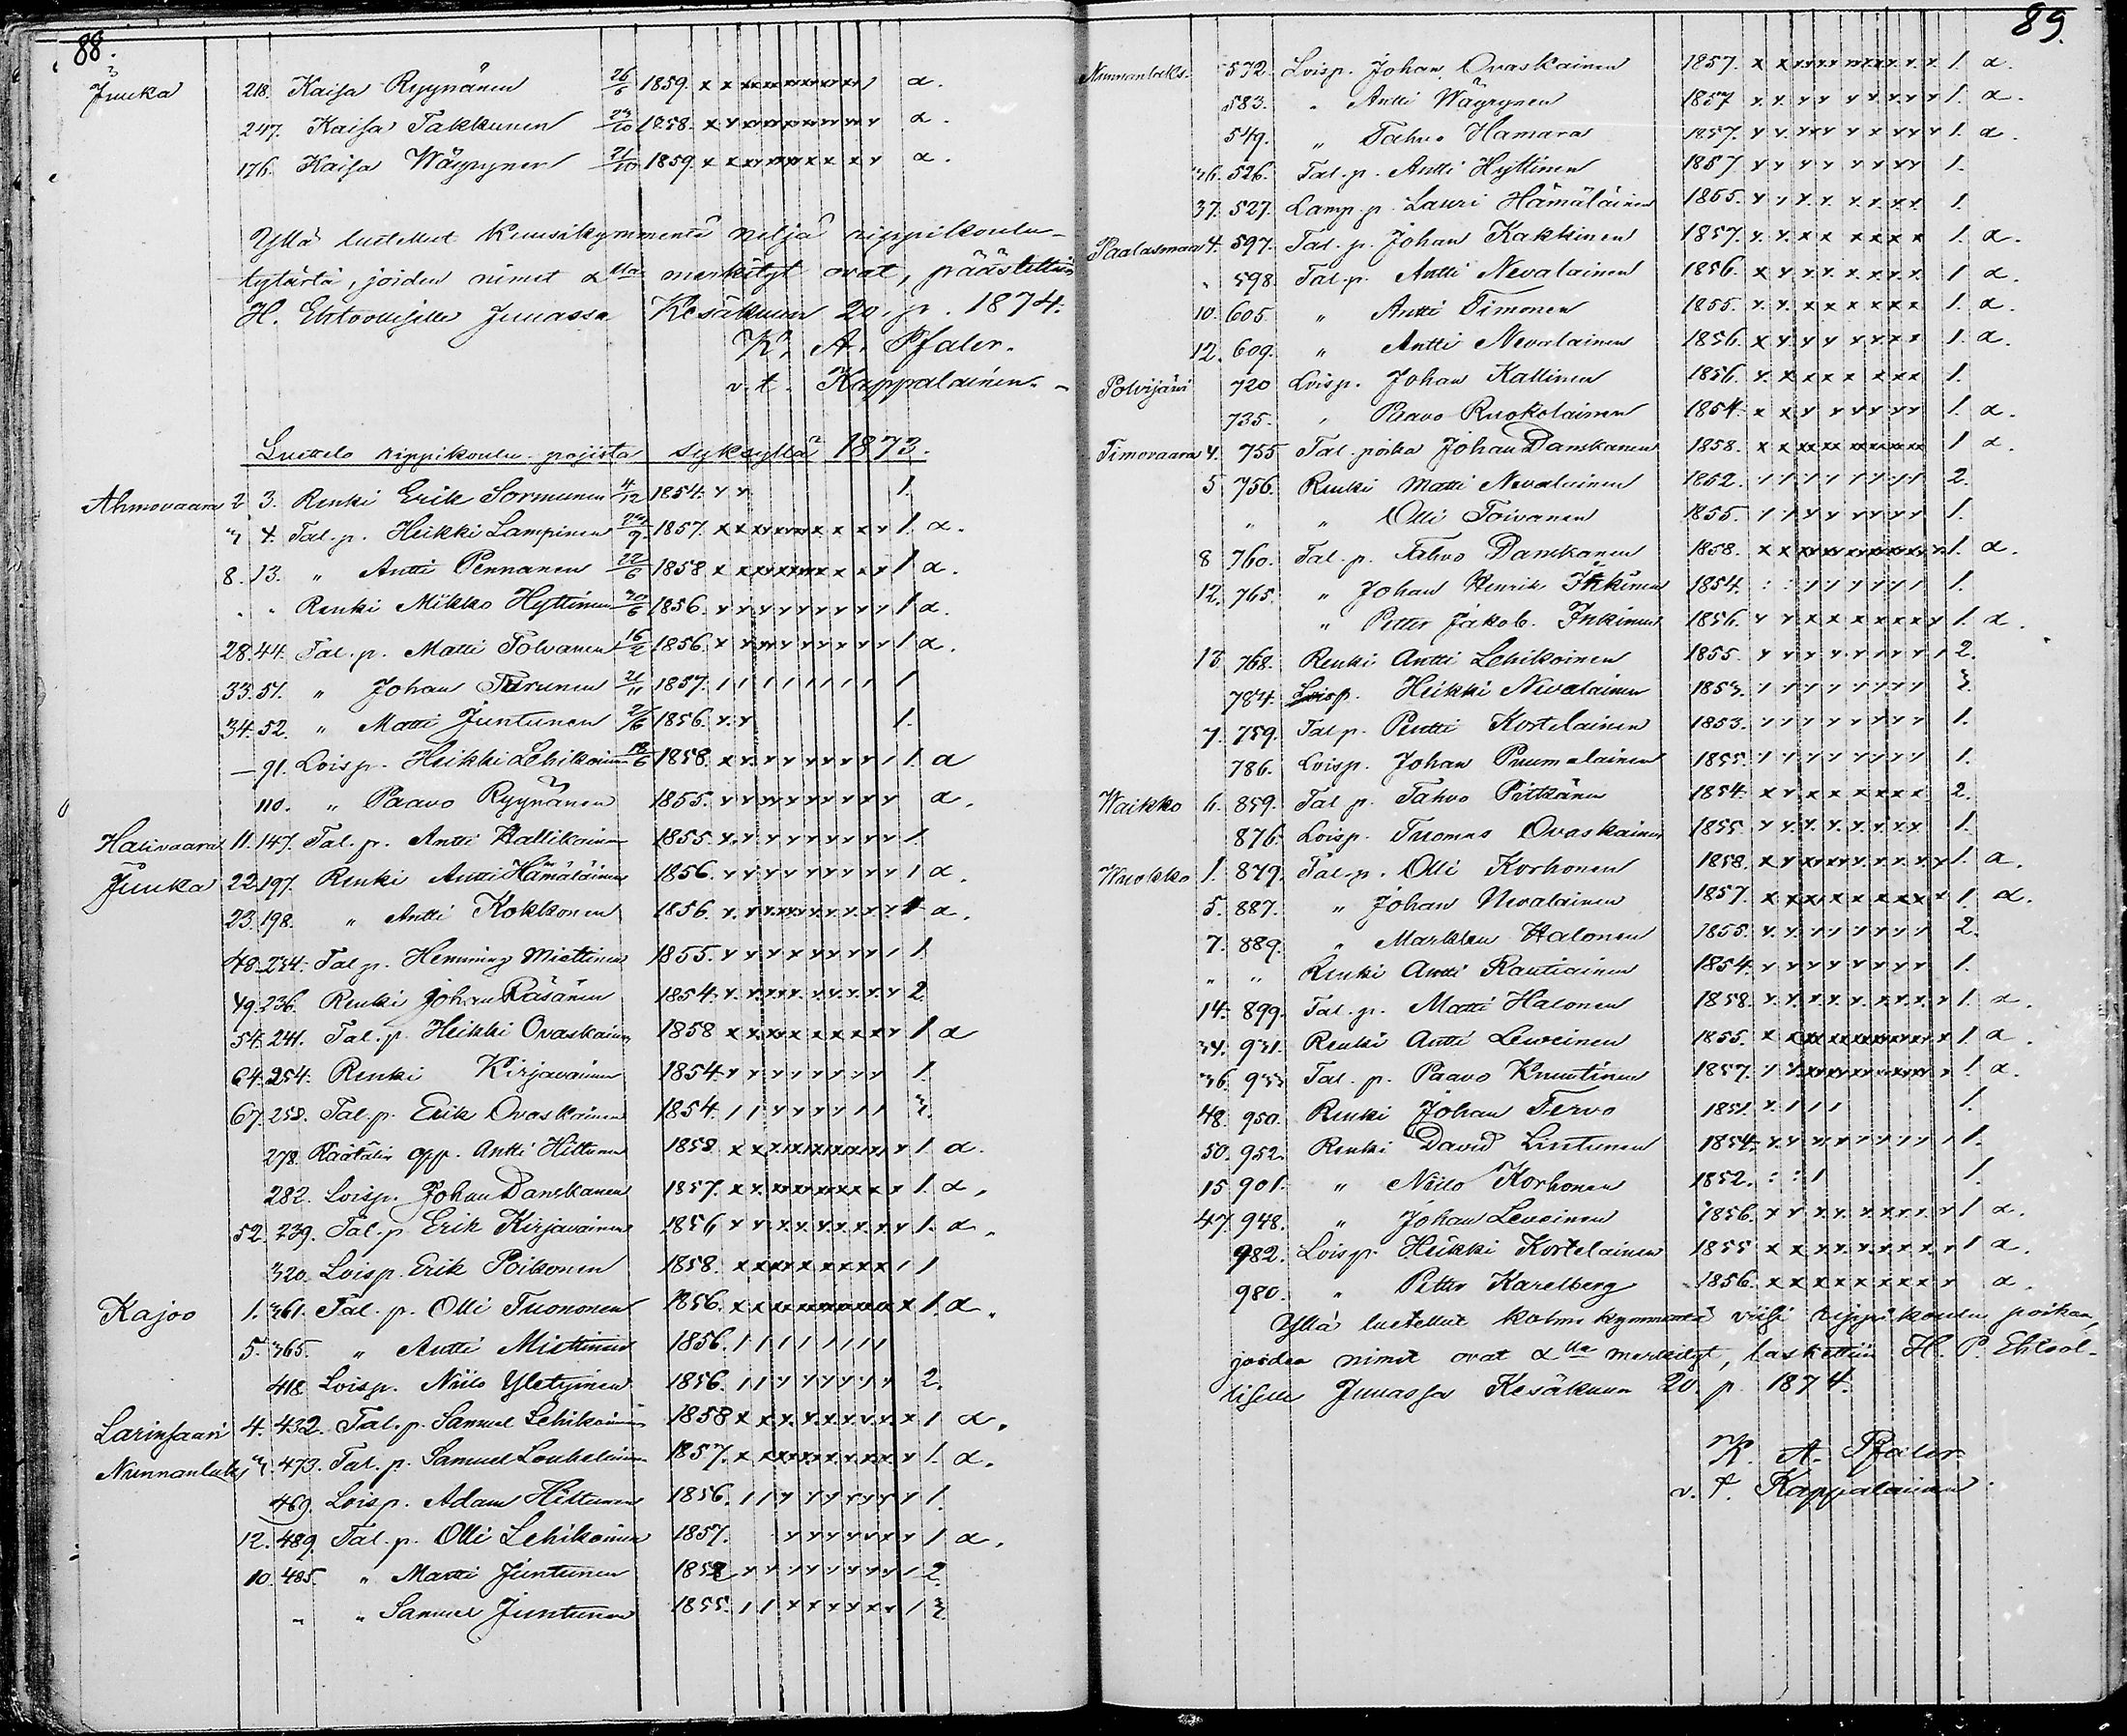 88.
Juuka 218. Kaisa Ryynänen 26/6 1859. x x x x x x x x x 1 α.
247. Kaisa Takkunen 1858. α.
176. Kaisa Wäyrynen 21/10 1859. α.
Yllä luetellut Kuusikymmentä neljä rippikoulu-
tytärtä, joiden nimet α lla merkityt ovat, päästettiin
H. Ehtoolliselle Juuassa Kesäkuun 20. p. 1874.
K. A. Pfaler.
v. t. Kappalainen.
Luettelo rippikoulu-pojista syksyllä 1873.
Ahmovaara 2 3. Renki Erik Sormunen 4/12 1854. 1.
3 4. Tal. p. Heikki Lampinen 1857. 1. α.
8. 13. " Antti Pennanen 22/6 1858 1 α.
" " Renki Mikko Hyttinen 1856. 1 α.
28. 44. Tal. p. Matti Tolvanen 16/2 1856. 1 α.
33. 51. " Johan Turunen 21/11 1857. 1
34. 52. " Matti Juntunen 1856. 1.
— 91. Loisp. Heikki Lehikoinen 1858. 1. α
110. " Paavo Ryynänen 1855. α.
Halivaara 11. 147. Tal. p. Antti Hallikainen 1855. 1.
Juuka 22. 197. Renki Antti Hämäläinen 1856. 1 α.
23. 198. " Antti Kokkonen 1856. 1 α.
48. 234. Tal. p. Hemming Miettinen 1855. 1
49. 236. Renki Johan Räsänen 1854. 2.
54. 241. Tal. p. Heikki Ovaskainen 1858 1 α
64. 254. Renki Kirjavainen 1854. 1.
67. 258. Tal. p. Erik Ovaskainen 1854. 3.
278. Räätälin opp. Antti Hiltunen 1858 1 α.
282. Loisp. Johan Danskanen 1857. 1. α.
52. 239. Tal. p. Erik Kirjavainen 1856 1. α.
320. Loisp. Erik Poikonen 1858. 1
Kajoo 1. 361. Tal. p. Olli Tuononen 1856. 1. α.
5. 365. " Antti Miettinen 1856.
418. Loisp. Niilo Yletyinen 1856. 2.
Larinsaari 4. 432. Tal. p. Samuel Lehikoinen 1858 1 α.
Nunnanlaks 3. 473. Tal. p. Samuel Louhelainen 1857. 1. α.
469. Loisp. Adam Hiltunen 1856. 1.
12. 489. Tal. p. Olli Lehikoinen 1857. 1 α.
10. 485. " Matti Juntunen 1852 2.
" " Samuel Juntunen 1855. 3.
89.
Nunnanlaks. 572. Loisp. Johan Ovaskainen 1857. 1. α.
583. " Antti Wäyrynen 1857 1. α.
549. " Tahvo Hamara 1857. 1. α.
36. 526. Tal. p. Antti Hyttinen 1857 1.
37. 527. Lamp. p. Lauri Hämäläinen 1855. 1.
Paalasmaa 4. 597. Tal. p. Johan Kakkinen 1857. 1. α.
" 598. Tal. p. Antti Nevalainen 1856. 1 α.
10. 605. " Antti Timonen 1855. 1. α.
12. 609. " Antti Nevalainen 1856. 1. α.
Polvijärvi 720 Loisp. Johan Kallinen 1856. 1.
735. " Paavo Ruokolainen 1854. 1. α.
Timovaara 4. 755 Tal. poika Johan Danskanen 1858. 1 α.
5 756. Renki Matti Nevalainen 1852. 2.
" " Olli Toivanen 1855. 1.
8 760. Tal. p. Tahvo Danskanen 1858. 1. α.
12. 765. " Johan Henrik Inkinen 1854. 1.
" Petter Jakob. Inkinen 1856. 1. α.
13 768. Renki Antti Lehikoinen 1855. 2.
784. Loisp. Heikki Nevalainen 1853. 3.
7. 759. Tal. p. Pentti Kortelainen 1853. 1.
786. Loisp. Johan Puumalainen 1855. 1.
Waikko 6. 859. Tal. p. Tahvo Pitkänen 1854. 2.
876. Loisp. Tuomas Ovaskainen 1855. 1.
Wuokko 1. 879. Tal. p. Olli Korhonen 1858. 1. α.
5. 887. " Johan Nevalainen 1857. 1. α.
7. 889. " Markken Halonen 1855. 2.
" " Renki Antti Rautiainen 1854. 1.
14. 899. Tal. p. Matti Halonen 1858. 1. α.
34. 931. Renki Antti Leveinen 1855. 1 α.
36. 933 Tal. p. Paavo Knuutinen 1857. 1. α.
48. 950. Renki Johan Tervo 1851. 1.
50. 952. Renki David Lintunen 1854. 1.
15 901. " Niilo Korhonen 1852. 1.
47. 948. " Johan Leveinen 1856. 1 α.
982. Loisp. Heikki Kortelainen 1855 1 α.
980. " Petter Karelberg 1856. α.
Yllä luetellut kolme kymmentä viisi rippikoulu poikaa,
joiden nimet ovat α lla merkityt, laskettiin H. P. Ehtool-
liselle Juuassa Kesäkuun 20. p. 1874.
K. A. Pfaler
v. t. Kappalainen.